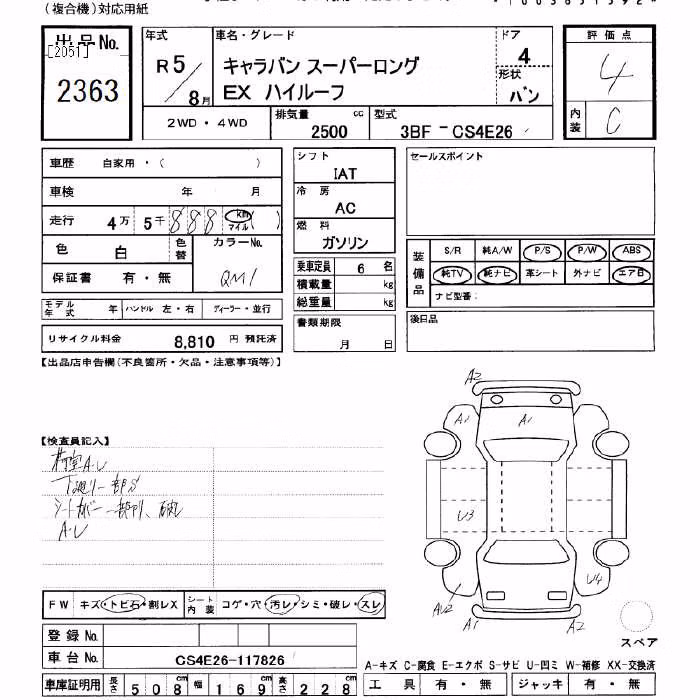 (複合機)対応用紙
出品No.
[2051]
2363
年式
R5/8月
車名・グレード
キャラバン スーパーロング
EX ハイルーフ
ドア
4
形状
バン
評価点
4
内装
C
2WD・4WD
排気量
2500
cc
型式
3BF - CS4E26
車歴 自家用・( )
車検 年 月
走行 4万 5千 888 km マイル ( )
色 白 色替
カラーNo.
QM1
保証書 有・無
モデル年式 年 ハンドル 左・右 ディーラー・並行
リサイクル料金 8,810 円 預託済
シフト
IAT
冷房
AC
燃料
ガソリン
乗車定員 6 名
積載量 kg
総重量 kg
書類期限
月 日
セールスポイント
装備品
S/R 純A/W P/S P/W ABS
純TV 純ナビ 革シート 外ナビ エアB
ナビ型番:
後日品
【出品店申告欄(不良箇所・欠品・注意事項等)】
【検査員記入】
荷室A・U
下廻り一部S
シートカバー一部切り、破れ
A・U
A2
A1
A1
U3
AU2
U4
A1
A2
スペア
FW キズ・トビ石・割レX
シート内装 コゲ・穴・汚レ・シミ・破レ・スレ
登録No.
車台No. CS4E26-117826
車庫証明用 長さ 508cm 幅 169cm 高さ 228cm
A-キズ C-腐食 E-エクボ S-サビ U-凹ミ W-補修 XX-交換済
工具 有・無 ジャッキ 有・無